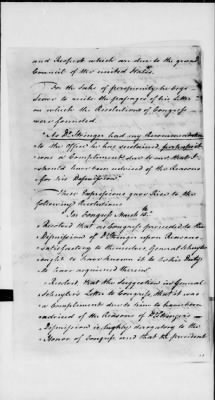 and Respect which are due to the grand
Council of the united States.
For the Sake of perspicuity he begs
leave to recite the passages of his Letter
on which the Resolutions of Congress
were founded.
"As Dr. Stringer had my Recommendation
to the Office he has sustained perhaps it
was a Compliment due to me that I
should have been advised of the Reasons
for his Dismission"
These Expressions gave Rise to the
following Resolutions
In Congress March 15th
Resolved that as Congress proceeded to the
Dismission of Dr. Stringer upon Reasons
Satisfactory to themselves General Schuyler
ought to have known it to be his Duty
to have acquiesced therein
Resolved that the Suggestion in General
Schuyler's Letter to Congress that it was
a Compliment due to him to have been
advised of the Reasons of Dr. Stringer's
Dismission is highly derogatory to the
Honor of Congress and that the president